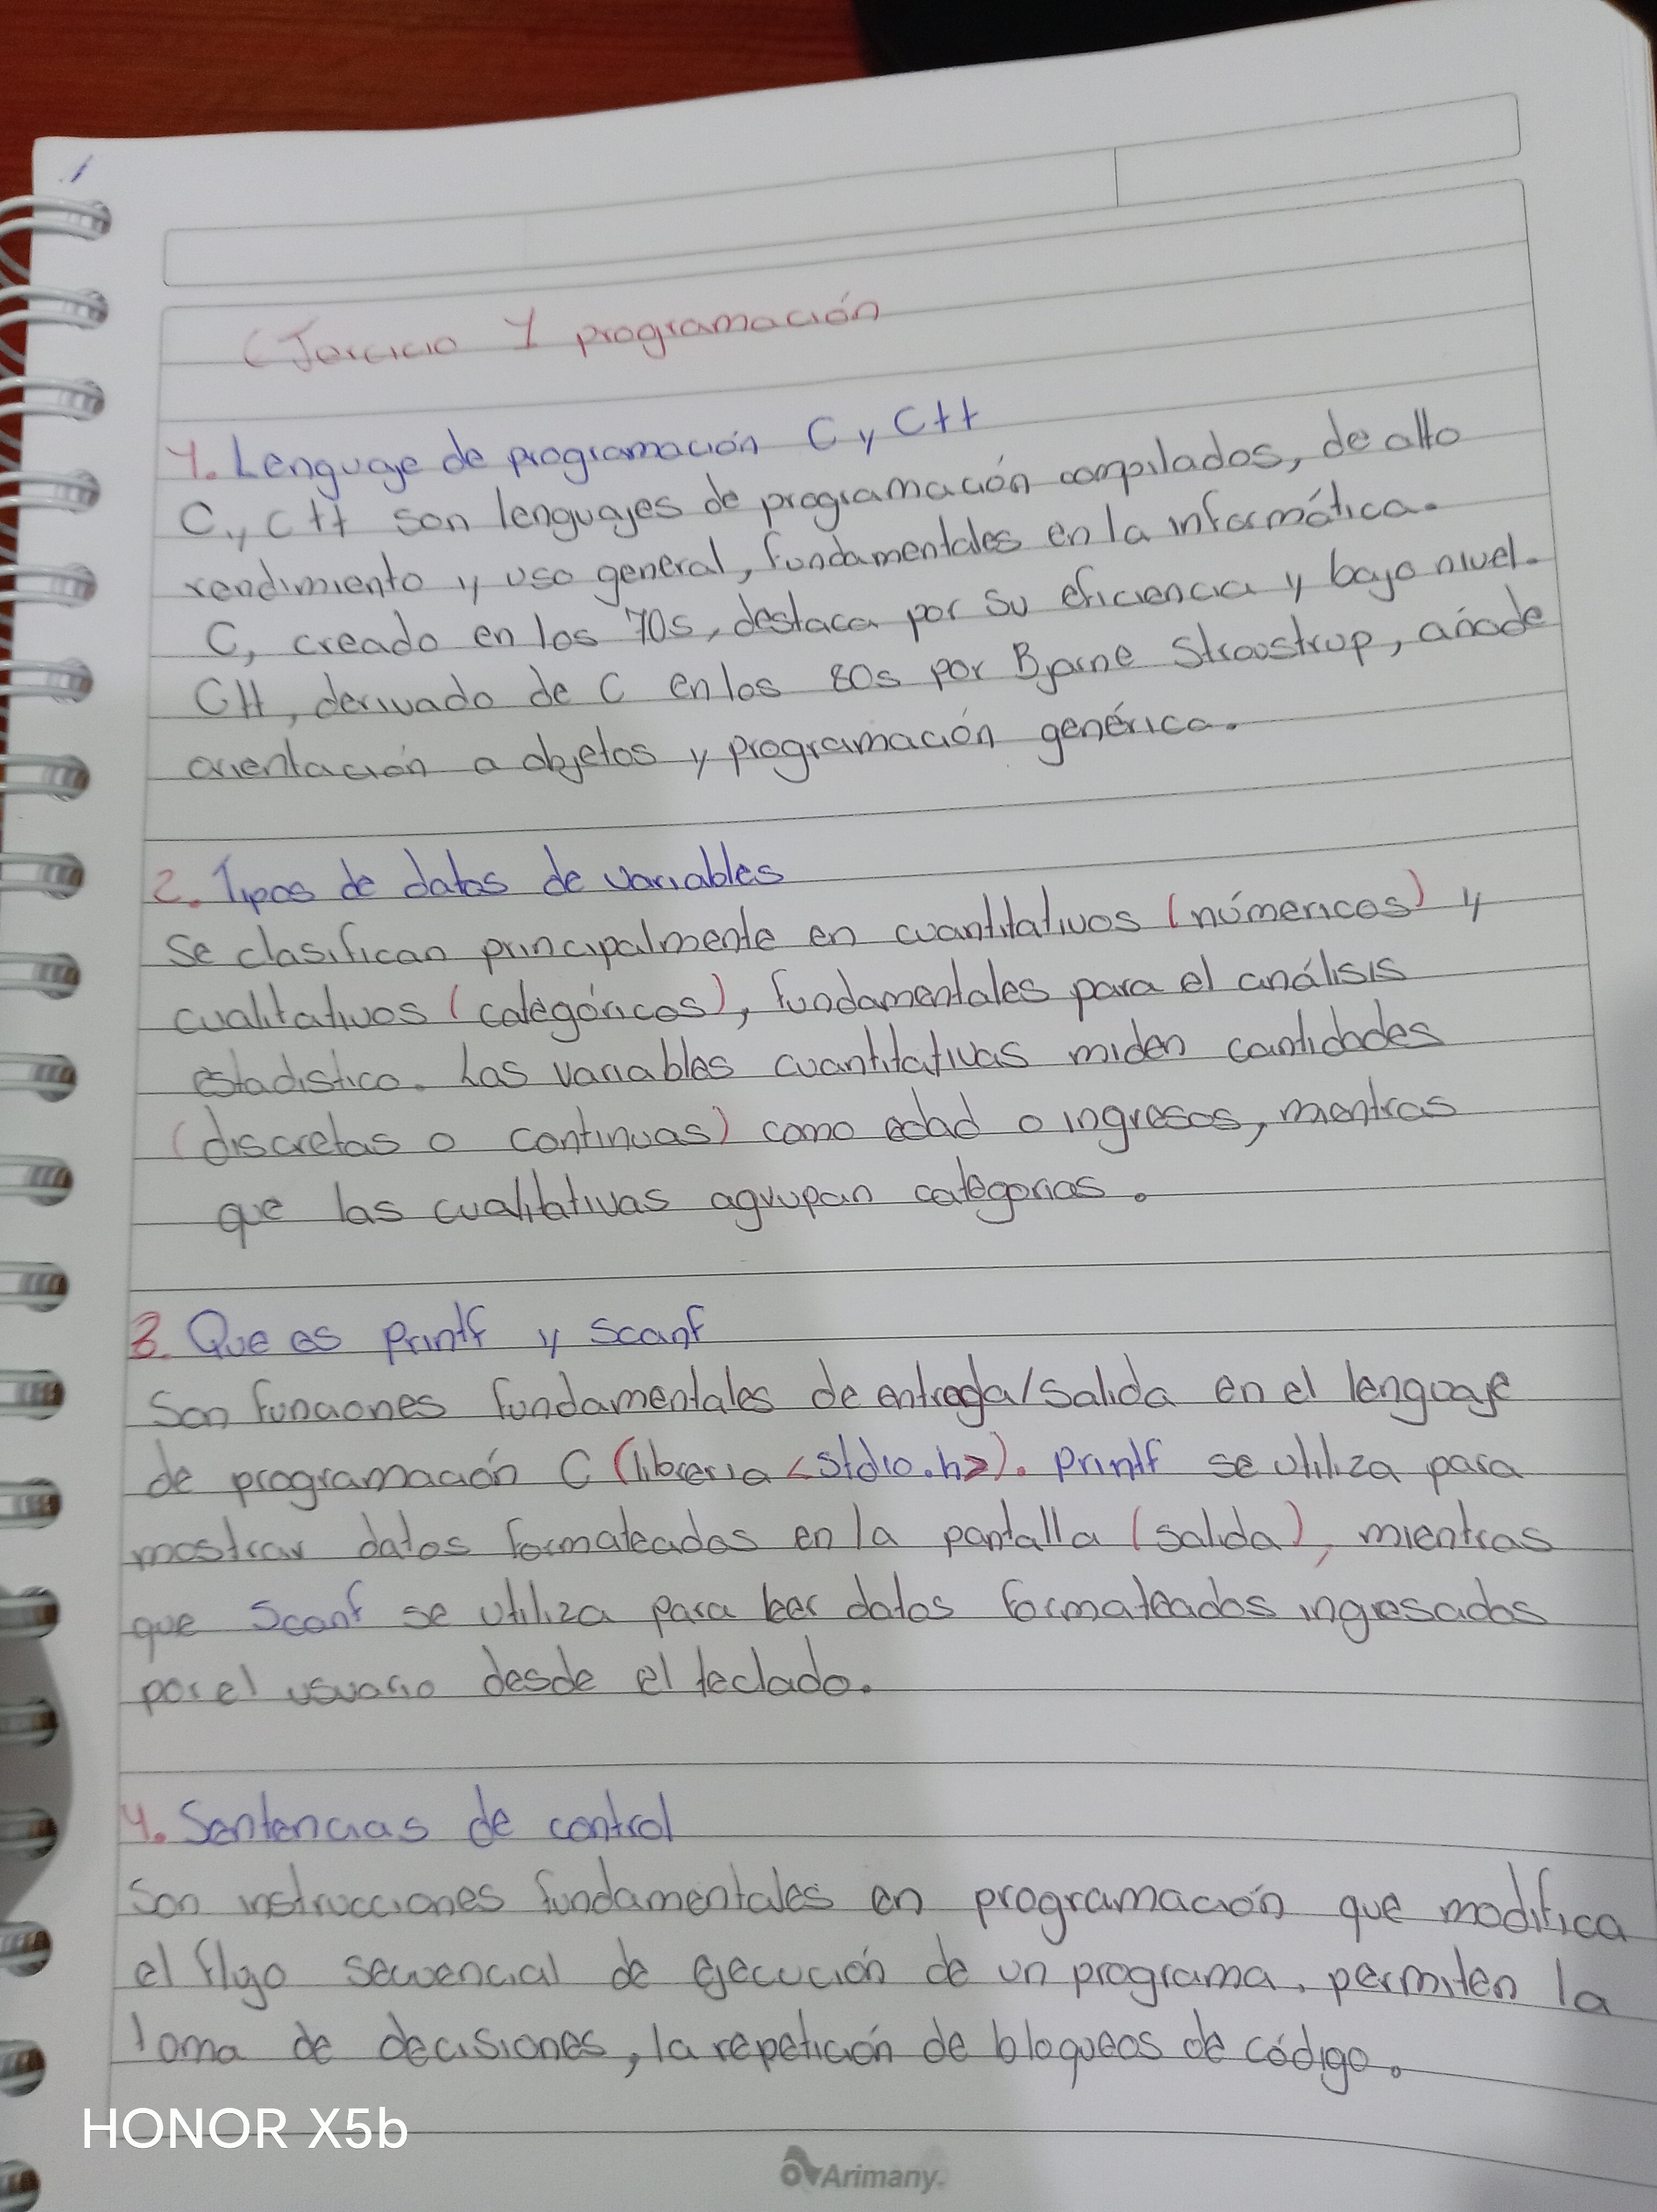 Ejercicio 1 programación
1. Lenguage de programación C y C++
C y C++ son lenguajes de programación compilados, de alto
rendimiento y uso general, fundamentales en la informática.
C, creado en los 70s, destaca por su eficiencia y bajo nivel.
C++, derivado de C en los 80s por Bjarne Stroustrup, añade
orientación a objetos y programación genérica.
2. Tipos de datos de variables
Se clasifican principalmente en cuantitativos (númericos) y
cualitativos (categóricos), fundamentales para el análisis
estadistico. Las variables cuantitativas miden cantidades
(discretas o continuas) como edad o ingresos, mientras
que las cualitativas agrupan categorias.
3. Que es Printf y Scanf
Son funciones fundamentales de entrada/salida en el lenguaje
de programación C (libreria <Stdio.h>). Printf se utiliza para
mostrar datos formateados en la pantalla (salida), mientras
que Scanf se utiliza para leer datos formateados ingresados
por el usuario desde el teclado.
4. Sentencias de control
Son instrucciones fundamentales en programación que modifica
el flujo secuencial de ejecución de un programa, permiten la
toma de decisiones, la repetición de bloqueos de código.
HONOR X5b
Arimany.